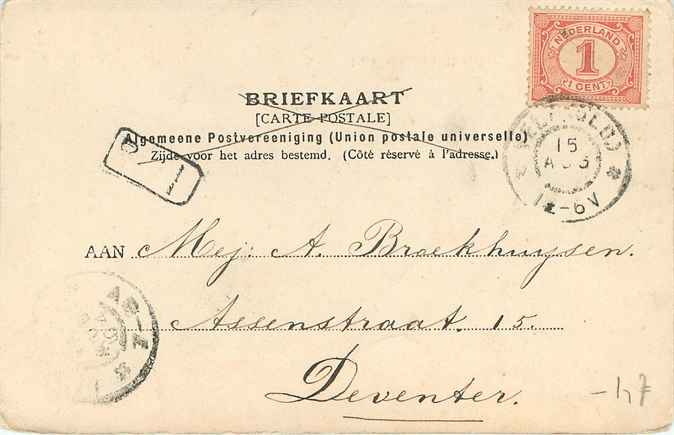 NEDERLAND
1
1 CENT
BRIEFKAART
[CARTE POSTALE]
Algemeene Postvereeniging (Union postale universelle)
Zijde voor het adres bestemd. (Côté réservé à l'adresse.)
15
12-6V
AAN Mej: A. Broekhuysen.
Assenstraat. 15.
Deventer.